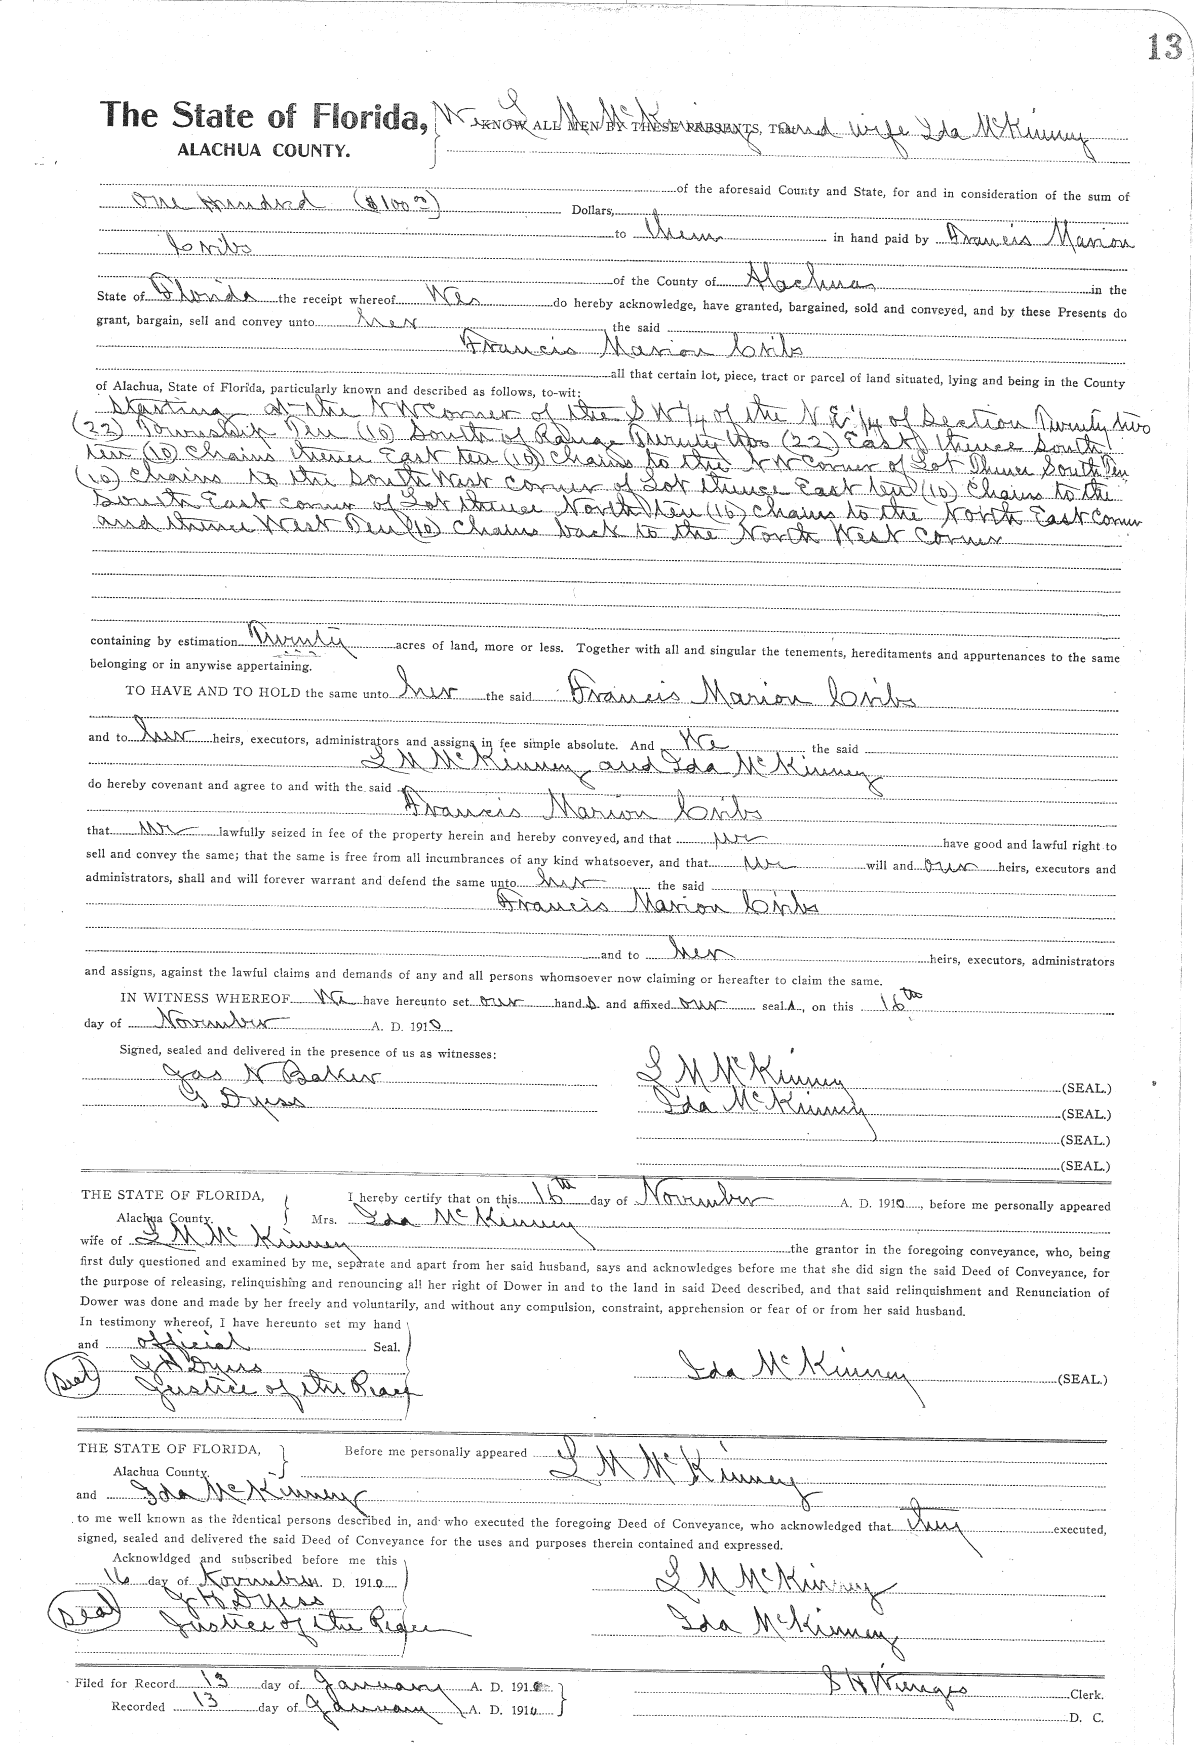 13
The State of Florida, We L M McKinney and wife Ida McKinney
KNOW ALL MEN BY THESE PRESENTS, That
ALACHUA COUNTY.
of the aforesaid County and State, for and in consideration of the sum of
One Hundred ($100.00) Dollars,
to them in hand paid by Francis Marion
Cribs
of the County of Alachua in the
State of Florida the receipt whereof We do hereby acknowledge, have granted, bargained, sold and conveyed, and by these Presents do
grant, bargain, sell and convey unto her the said
Francis Marion Cribs
all that certain lot, piece, tract or parcel of land situated, lying and being in the County
of Alachua, State of Florida, particularly known and described as follows, to-wit:
Starting at the NW Corner of the S W 1/4 of the N.E. 1/4 of Section Twenty two
(22) Township Ten (10) South of Range Twenty two (22) East thence South
ten (10) Chains thence East ten (10) Chains to the NW Corner of Lot thence South Ten
(10) Chains to the South West corner of Lot thence East ten (10) Chains to the
South East corner of Lot thence North Ten (10) chains to the North East Corner
and thence West Ten (10) Chains back to the North West Corner
containing by estimation Twenty acres of land, more or less. Together with all and singular the tenements, hereditaments and appurtenances to the same
belonging or in anywise appertaining.
TO HAVE AND TO HOLD the same unto her the said Francis Marion Cribs
and to her heirs, executors, administrators and assigns in fee simple absolute. And We the said
L M McKinney and Ida McKinney
do hereby covenant and agree to and with the said
Francis Marion Cribs
that we lawfully seized in fee of the property herein and hereby conveyed, and that we have good and lawful right to
sell and convey the same; that the same is free from all incumbrances of any kind whatsoever, and that we will and our heirs, executors and
administrators, shall and will forever warrant and defend the same unto her the said
Francis Marion Cribs
and to her heirs, executors, administrators
and assigns, against the lawful claims and demands of any and all persons whomsoever now claiming or hereafter to claim the same.
IN WITNESS WHEREOF We have hereunto set our hand s and affixed our seal s, on this 16th
day of November A. D. 1910
Signed, sealed and delivered in the presence of us as witnesses:
Jas N Baker L M McKinney (SEAL.)
G Dyess Ida McKinney (SEAL.)
(SEAL.)
(SEAL.)
THE STATE OF FLORIDA, I hereby certify that on this 16th day of November A. D. 1910, before me personally appeared
Alachua County. Mrs. Ida McKinney
wife of L M McKinney the grantor in the foregoing conveyance, who, being
first duly questioned and examined by me, separate and apart from her said husband, says and acknowledges before me that she did sign the said Deed of Conveyance, for
the purpose of releasing, relinquishing and renouncing all her right of Dower in and to the land in said Deed described, and that said relinquishment and Renunciation of
Dower was done and made by her freely and voluntarily, and without any compulsion, constraint, apprehension or fear of or from her said husband.
In testimony whereof, I have hereunto set my hand
and official Seal.
J H Dyess
Seal Justice of the Peace Ida McKinney (SEAL.)
THE STATE OF FLORIDA, Before me personally appeared L M McKinney
Alachua County.
and Ida McKinney
to me well known as the identical persons described in, and who executed the foregoing Deed of Conveyance, who acknowledged that they executed,
signed, sealed and delivered the said Deed of Conveyance for the uses and purposes therein contained and expressed.
Acknowldged and subscribed before me this
16 day of November A. D. 1910 L M McKinney
J H Dyess
Seal Justice of the Peace Ida McKinney
Filed for Record 13 day of January A. D. 191 S H Wienges Clerk.
Recorded 13 day of January A. D. 191 D. C.